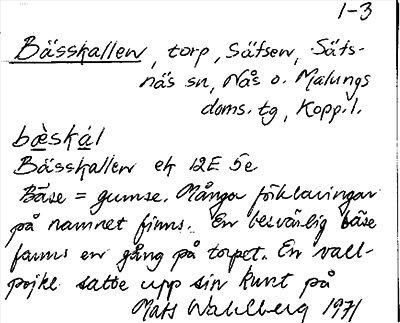 1-3
Bässkallen, torp, Säfsen, Säfs-
näs sn, Nås o. Malungs
doms. tg, Kopp. l.
bæ̀skál
Bässkallen ek 12E 5e
Bäse = gumse. Många förklaringar
på namnet finns. En besvärlig bäse
fanns en gång på torpet. En vall-
pojke satte upp sin kunt på
Mats Wahlberg 1971